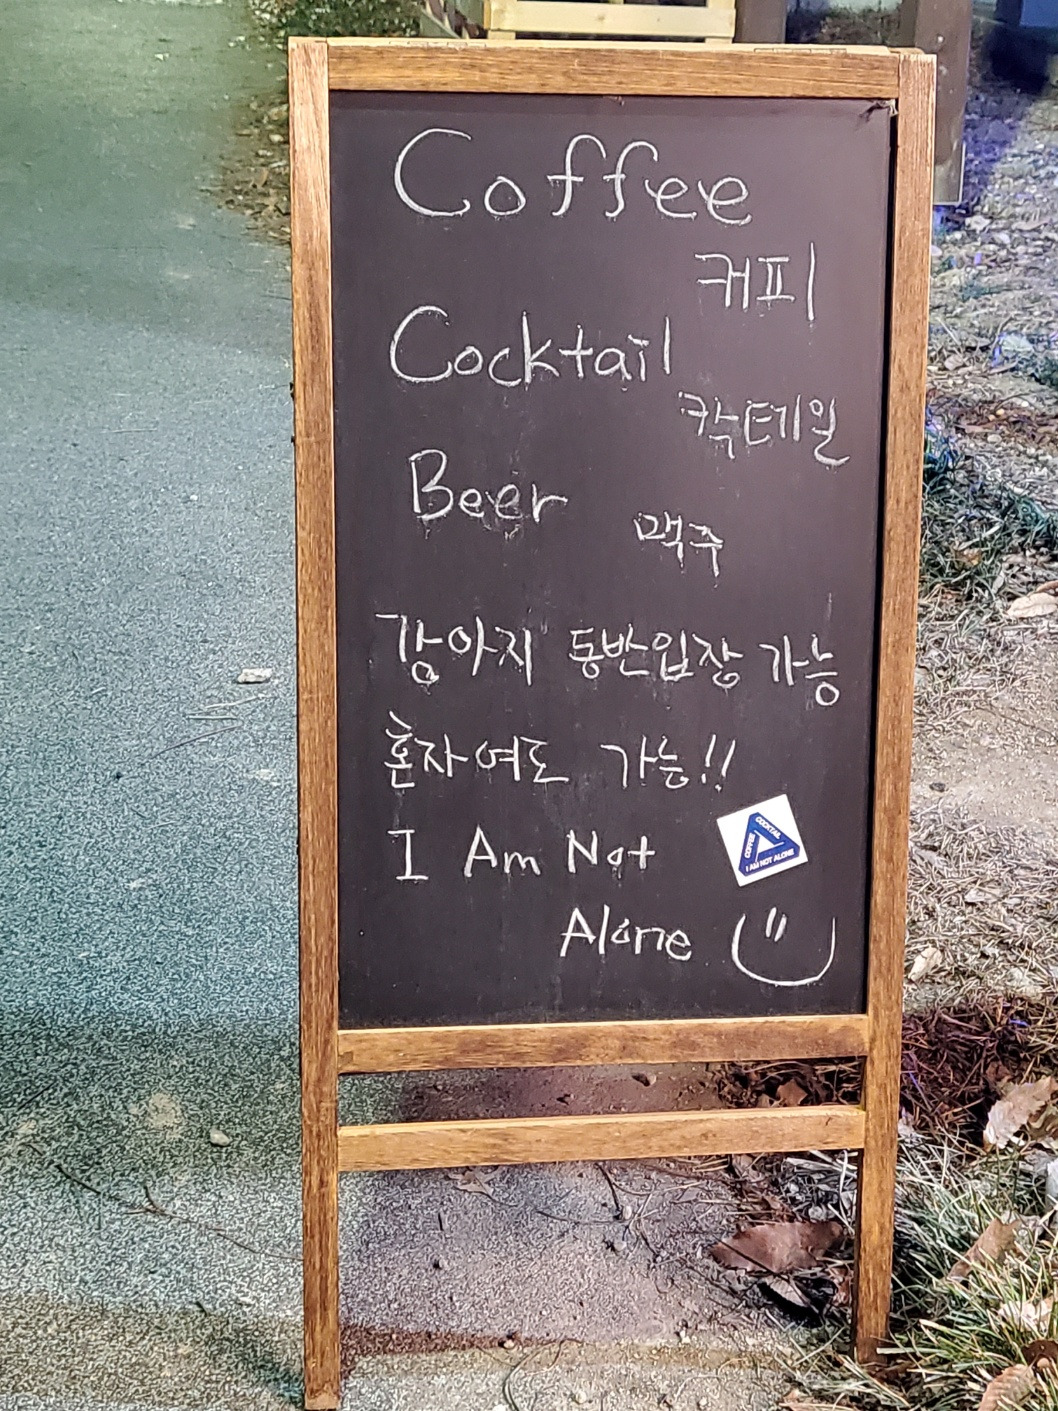 Coffee
커피
Cocktail
칵테일
Beer
맥주
강아지 동반입장 가능
혼자여도 가능!!
I Am Not
Alone
COFFEE
COCKTAIL
I AM NOT ALONE